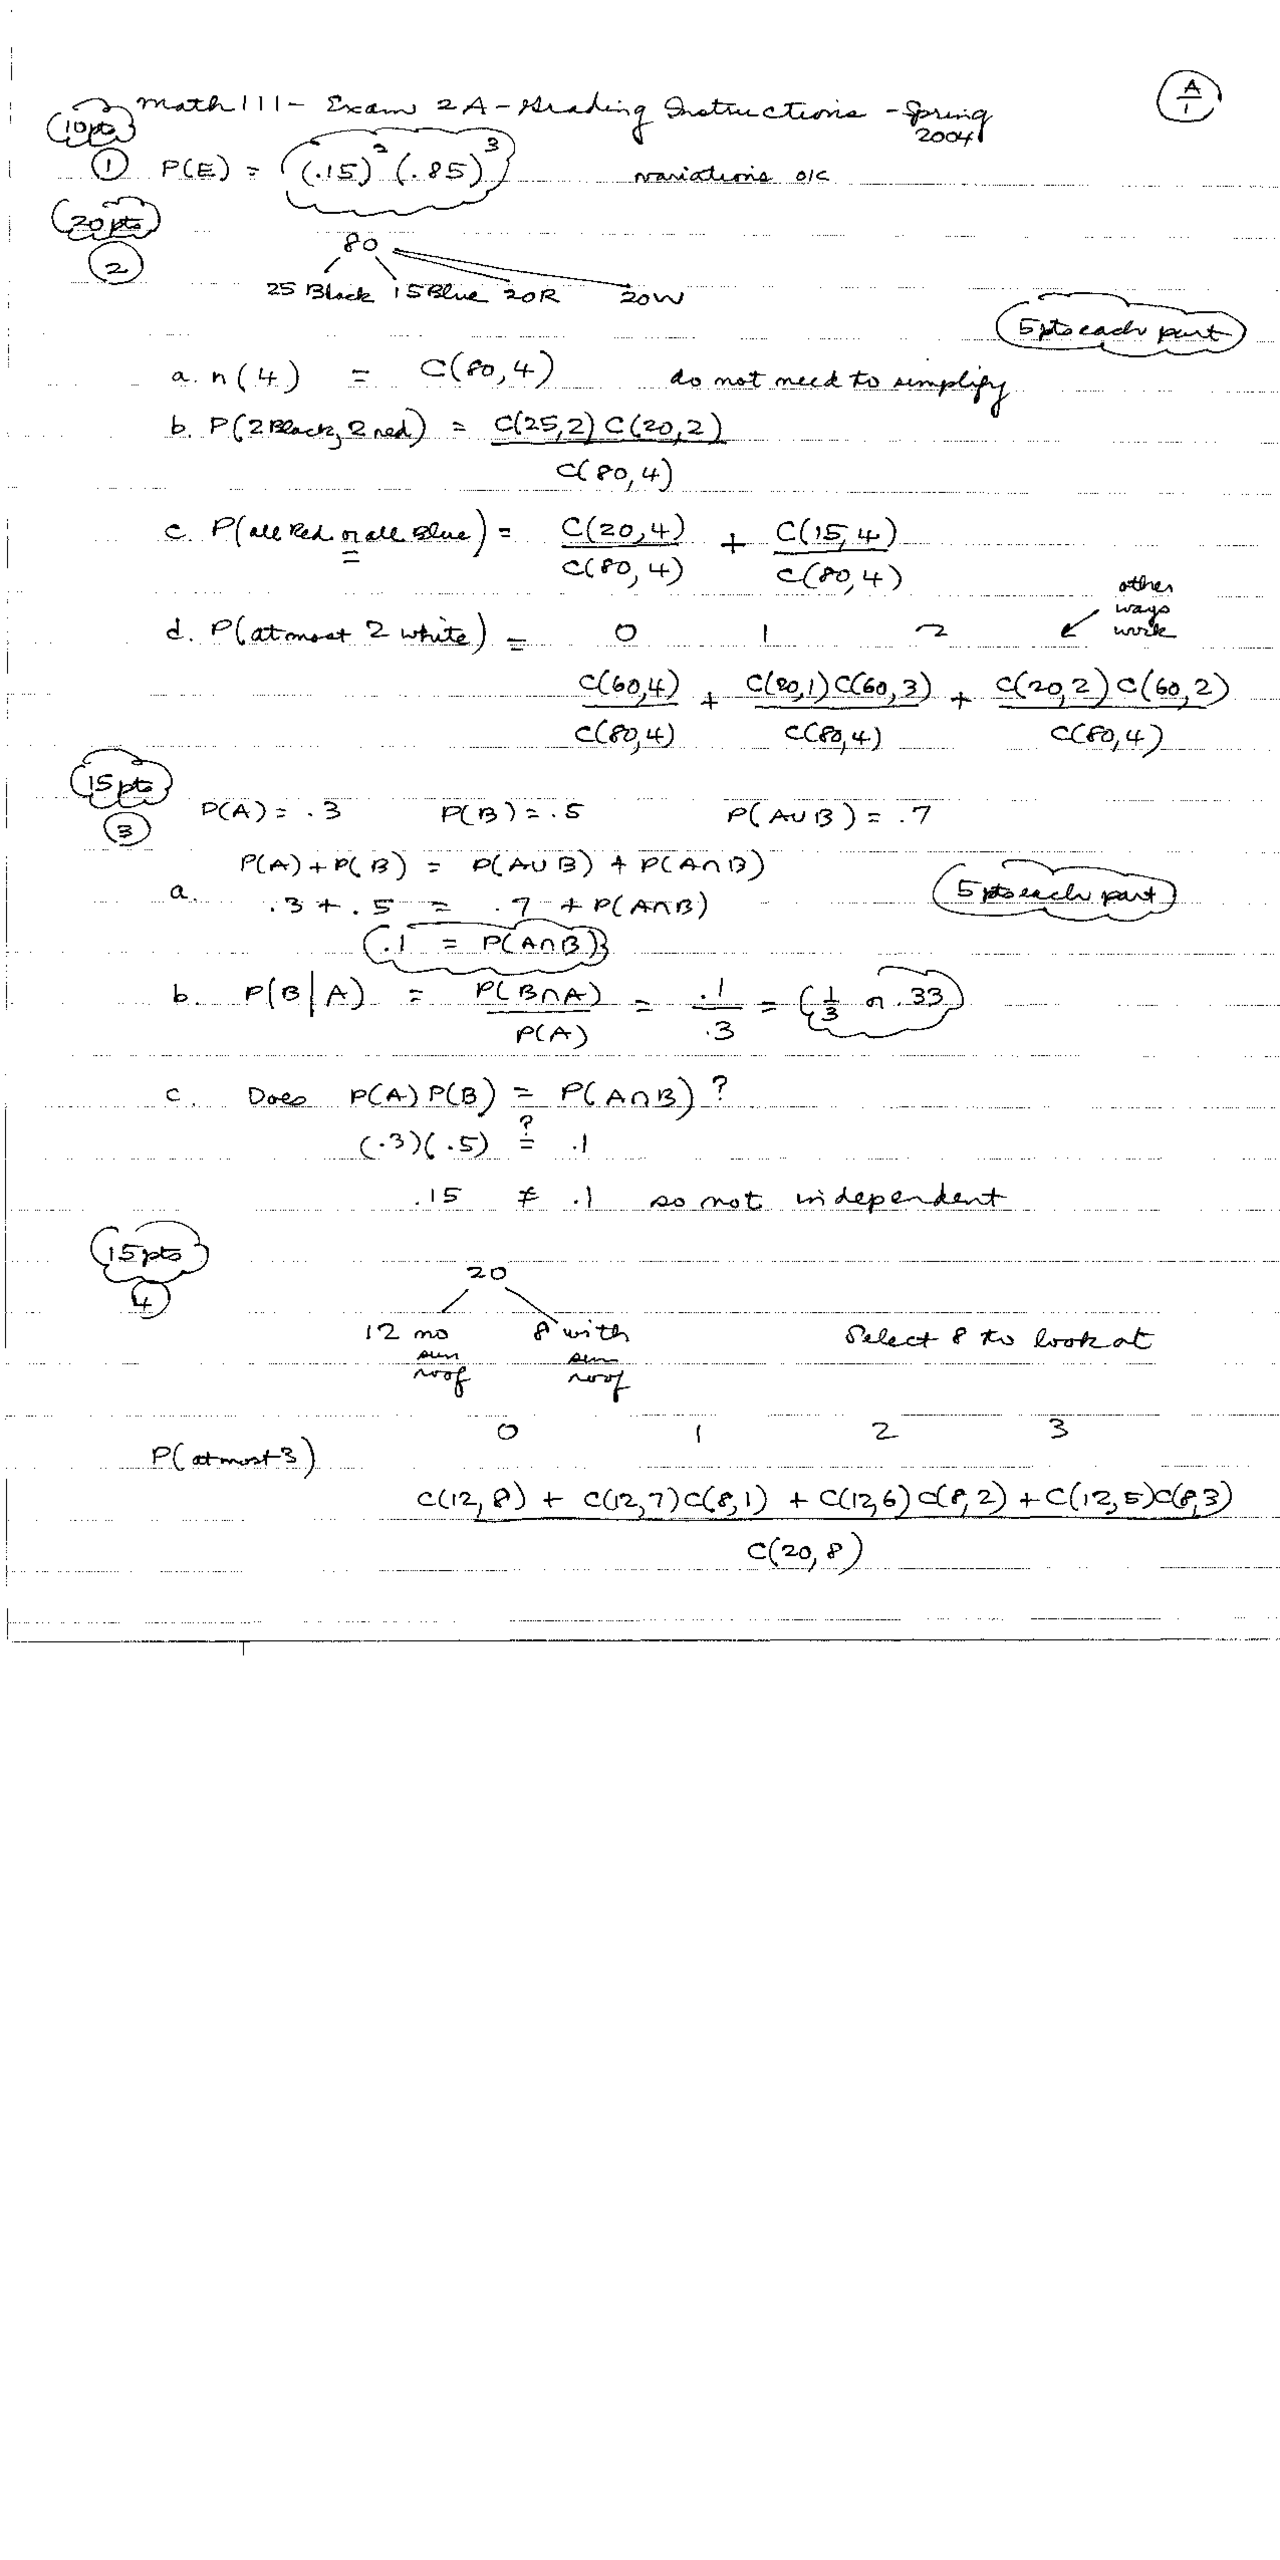 Math 111 - Exam 2A - Grading Instructions - Spring 2004
A/1
10pts
1 P(E) = (.15)² (.85)³ variations ok
20 pts
2
80
25 Black 15 Blue 20R 20W
5 pts each part
a. n(4) = C(80,4) do not need to simplify
b. P(2 Black, 2 red) = C(25,2) C(20,2)
C(80,4)
c. P(all Red or all Blue) = C(20,4) + C(15,4)
C(80,4) C(80,4)
other ways work
d. P(at most 2 white) = 0 1 2
C(60,4) + C(20,1)C(60,3) + C(20,2)C(60,2)
C(80,4) C(80,4) C(80,4)
15 pts
3 P(A) = .3 P(B) = .5 P(A∪B) = .7
P(A) + P(B) = P(A∪B) + P(A∩B)
5 pts each part
a. .3 + .5 = .7 + P(A∩B)
.1 = P(A∩B)
b. P(B|A) = P(B∩A) = .1 = (1/3 or .33)
P(A) .3
c. Does P(A)P(B) = P(A∩B)?
(.3)(.5) ?= .1
.15 ≠ .1 so not independent
15 pts
4
20
12 no sun roof 8 with sun roof Select 8 to look at
0 1 2 3
P(at most 3)
C(12,8) + C(12,7)C(8,1) + C(12,6)C(8,2) + C(12,5)C(8,3)
C(20,8)